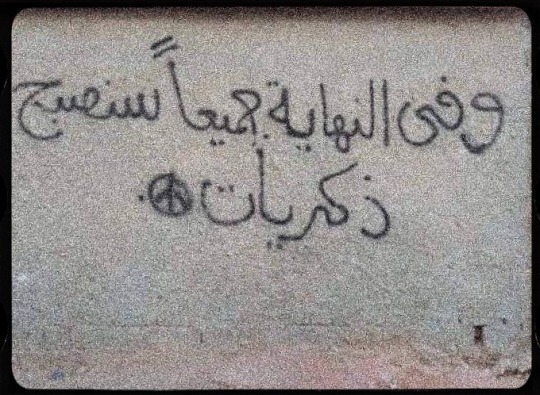 وفى النهاية جميعاً سنصبح
ذكريات